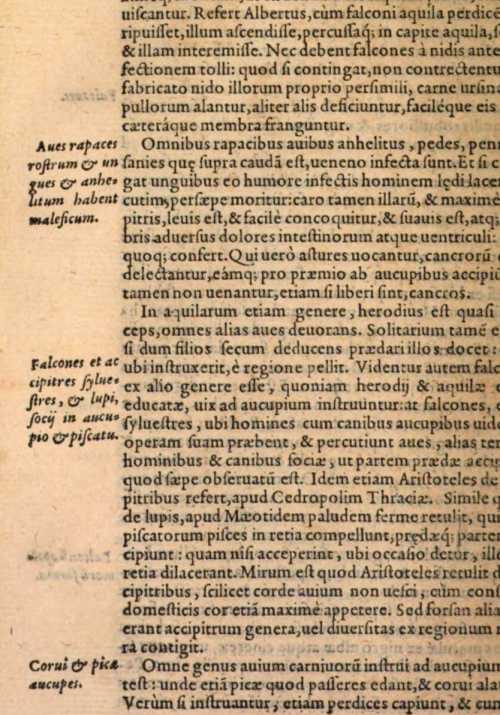 uiscantur. Refert Albertus, cùm falconi aquila perdicē
ripuisset, illum ascendisse, percussaq; in capite aquila, s
& illam interemisse. Nec debent falcones à nidis ante
fectionem tolli: quod si contingat, non contrectentu
fabricato nido illorum proprio persimili, carne ursina
pullorum alantur, aliter alis deficiuntur, faciléque eis
cæteráque membra franguntur.
Aues rapaces
rostrum & un
gues & anhe-
litum habent
maleficum.
Omnibus rapacibus auibus anhelitus, pedes, penn
sanies quę supra caudā est, ueneno infecta sunt. Et si c
gat unguibus eo humore infectis hominem lędi lacer
cutim, persæpe moritur: caro tamen illarū, & maximè
pitris, leuis est, & facilè concoquitur, & suauis est, atq;
bris aduersus dolores intestinorum atque uentriculi:
quoq; confert. Qui uerò astures uocantur, cancrorū c
delectantur, eámq; pro præmio ab aucupibus accipiū
tamen non uenantur, etiam si liberi sint, cancros.
In aquilarum etiam genere, herodius est quasi
ceps, omnes alias aues deuorans. Solitarium tamē e
si dum filios secum deducens prædari illos docet
ubi instruxerit, è regione pellit. Videntur autem falc
ex alio genere esse, quoniam herodij & aquilæ e
educatæ, uix ad aucupium instruuntur: at falcones,
syluestres, ubi homines cum canibus aucupibus uide
operam suam præbent, & percutiunt aues, alias ter
hominibus & canibus sociæ, ut partem prædæ accı
quod sæpe obseruatū est. Idem etiam Aristoteles de
pitribus refert, apud Cedropolim Thraciæ. Simile q
de lupis, apud Mæotidem paludem ferme retulit, qui
piscatorum pisces in retia compellunt, prędæq; parten
cipiunt: quam nisi acceperint, ubi occasio detur, ill
retia dilacerant. Mirum est quod Aristoteles retulit d
cipitribus, scilicet corde auium non uesci, cùm cons
domesticis cor etiā maximè appetere. Sed forsan alia
erant accipitrum genera, uel diuersitas ex regionum
ra contigit.
Falcones et ac
cipitres sylue-
stres, & lupi,
socij in aucu-
pio & piscatu.
Omne genus auium carniuorū instrui ad aucupium
test: unde etiā picæ quod passeres edant, & corui alat
Verùm si instruantur, etiam perdices capiunt, & cun
Corui & picæ
aucupes.